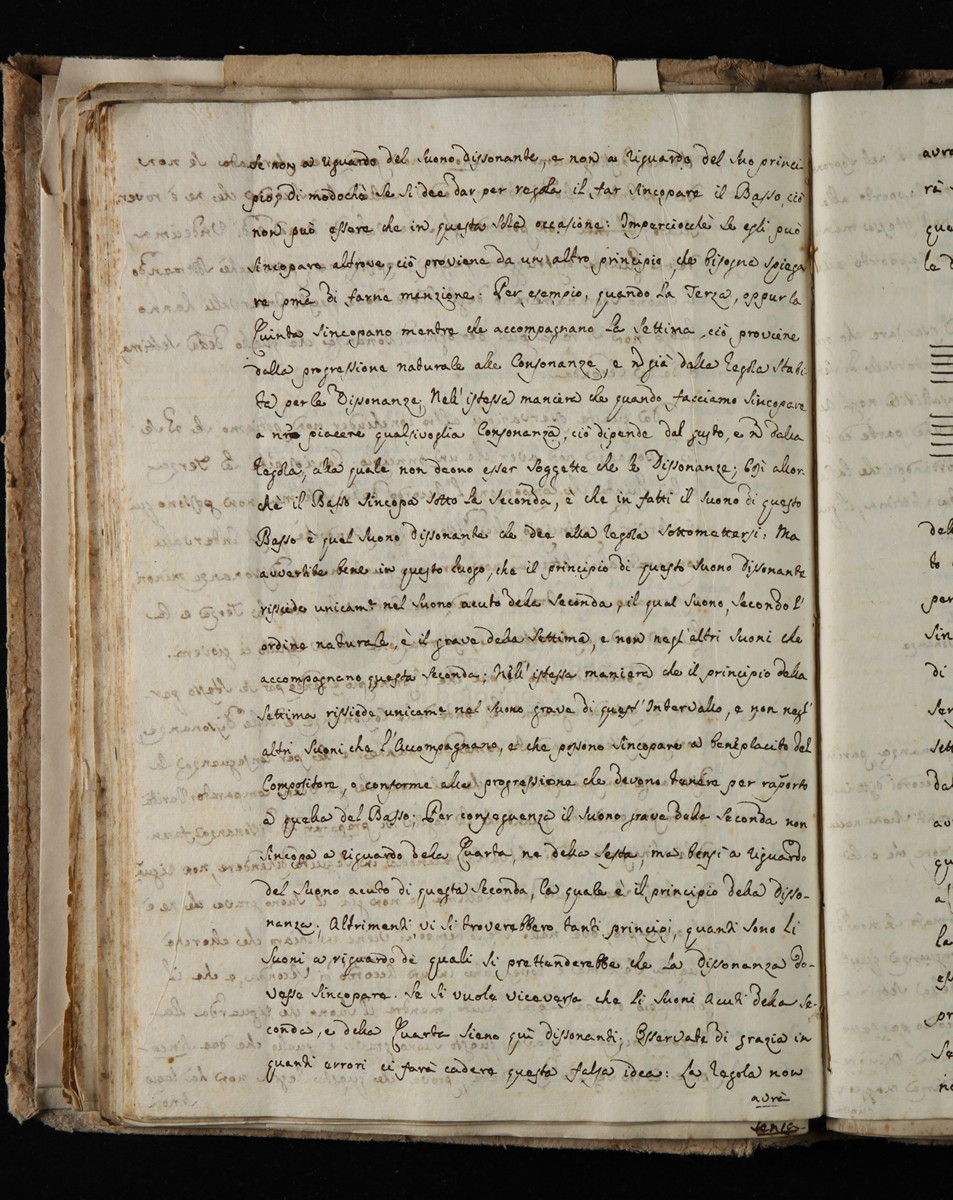 se non a riguardo del suono dissonante, e non a riguardo del suo princi
pio; di modochè se si dee dar per regola il far sincopare il Basso, ciò
non può essere che in questa sola occasione: Imperciocchè se egli può
sincopare altrove, ciò proviene da un'altro principio, che bisogna spiega
re pmã di farne menzione. Per esempio, quando la Terza, oppur la
Quinta sincopano mentre che accompagnano la settima, ciò proviene
dalla progressione naturale alle Consonanze, e ñ già dalla regola stabi
ta per le Dissonanze; Nell'istessa maniera che quando facciamo sincopare
a nrõ piacere qualsivoglia Consonanza, ciò dipende dal gusto, e ñ dalla
regola, alla quale non deono esser soggette che le Dissonanze; Così allor
chè il Basso sincopa sotto la seconda, è che in fatti il suono di questo
Basso è quel suono dissonante che dee alla regola sottomettersi: Ma
avvertite bene in questo luogo, che il principio di questo suono dissonante
rissiede unicamẽ nel suono acuto dela seconda, il qual suono, secondo l'
ordine naturale, è il grave della settima, e non negl'altri suoni che
accompagnano questa seconda; Nell'istessa maniera che il principio della
settima rissiede unicamẽ nel suono grave di quest'Intervallo, e non negl'
altri suoni che l'Accompagnano, e che possono sincopare a beneplacito del
Compositore, o conforme alla progressione che devono tenere per raporto
a quella del Basso; Per conseguenza il suono grave della seconda non
sincopa a riguardo dela Quarta, ne della sesta, ma bensì a riguardo
del suono acuto di questa seconda, la quale è il principio della disso-
nanza; Altrimenti, vi si troverebbero tanti principj, quanti sono li
suoni a riguardo de quali si prettenderebbe che la Dissonanza do-
vesse sincopare. Se si vuole viceversa che li suoni acuti della se-
conda, e della Quarta sieno quì dissonanti; Osservate di grazia in
quanti errori ci farà cadere questa falsa idea: La regola non
avrà